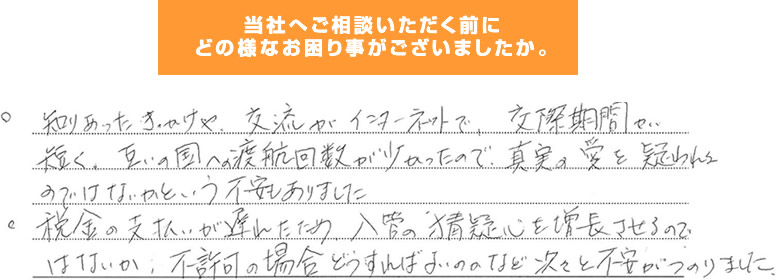 当社へご相談いただく前に
どの様なお困り事がございましたか。
○ 知りあったきっかけや、交流がインターネットで、交際期間が
短く、互いの国への渡航回数が少かったので、真実の愛を疑われる
のではないかという不安もありました
○ 税金の支払いが遅れたため 入管の猜疑心を増長させるので
はないか、不許可の場合どうすればよいのかなど次々と不安がつのりました